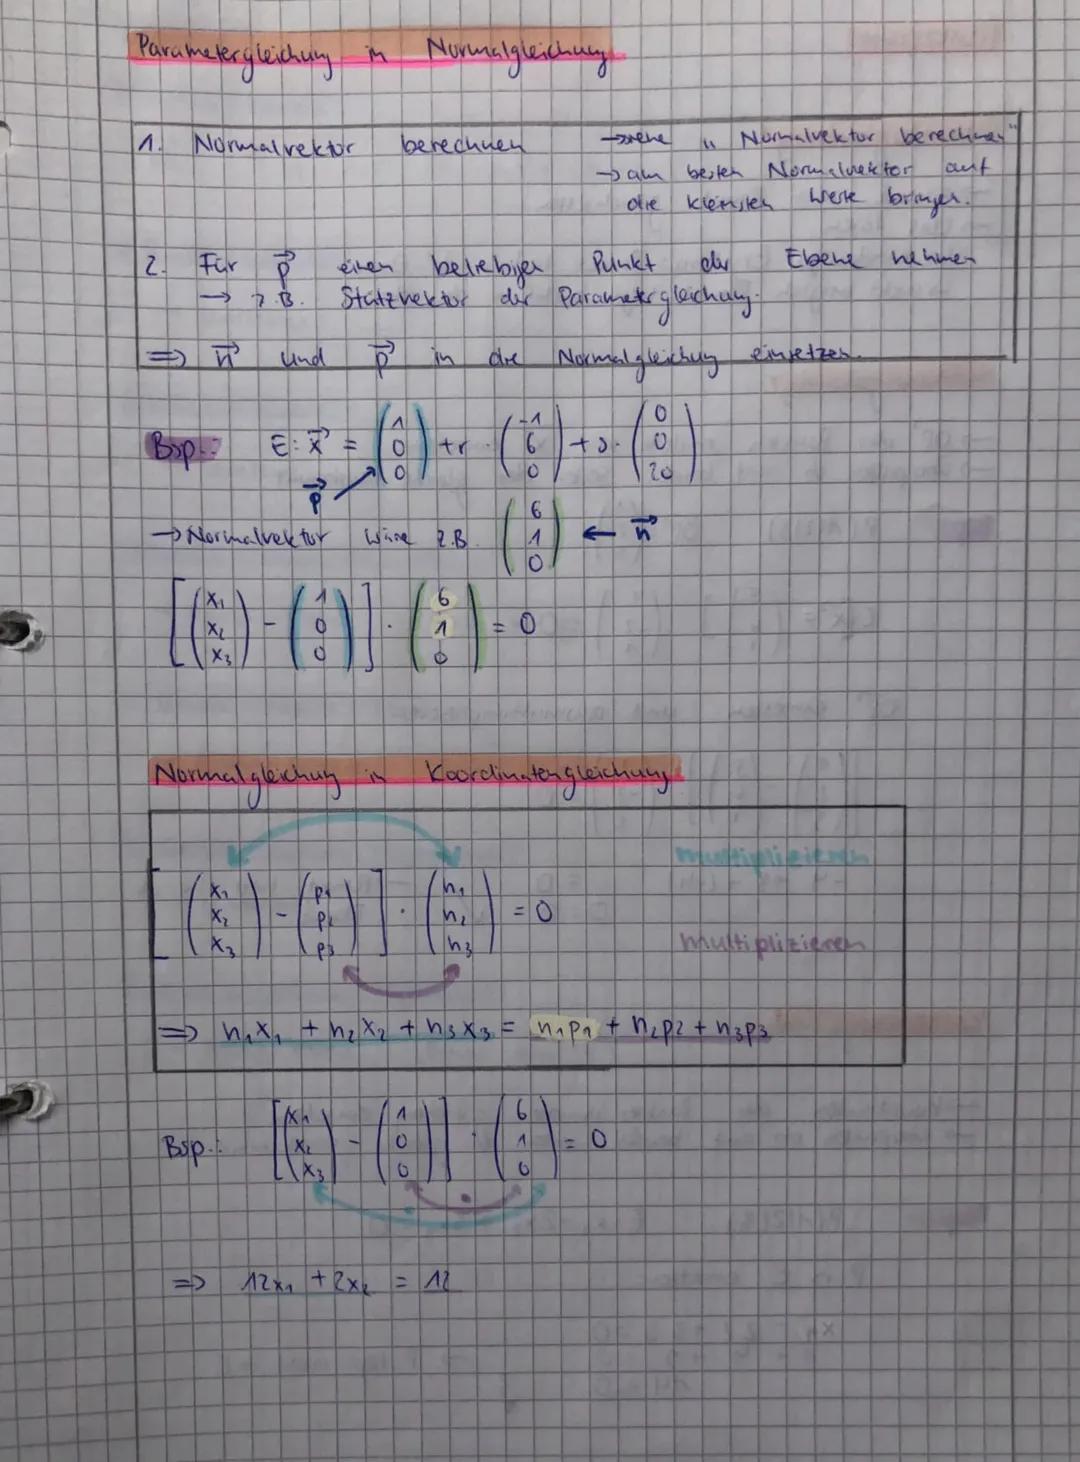 Parametergleichung in Normalgleichung
1. Normalvektor berechnen → siehe „Normalvektor berechnen"
→ am besten Normalvektor auf
die kleinsten Werte bringen.
2. Für p⃗ einen beliebigen Punkt der Ebene nehmen
→ z.B. Stützvektor der Parametergleichung.
⇒ n⃗ und p⃗ in die Normalgleichung einsetzen.
Bsp.: E: x⃗ = (1 0 0) + r · (-1 6 0) + s · (0 0 20)
p⃗
→ Normalvektor wäre z.B. (6 1 0) ← n⃗
[(x₁ x₂ x₃) - (1 0 0)] · (6 1 0) = 0
Normalgleichung in Koordinatengleichung
multiplizieren
[(x₁ x₂ x₃) - (p₁ p₂ p₃)] · (n₁ n₂ n₃) = 0
multiplizieren
⇒ n₁x₁ + n₂x₂ + n₃x₃ = n₁p₁ + n₂p₂ + n₃p₃
Bsp.: [(x₁ x₂ x₃) - (1 0 0)] · (6 1 0) = 0
⇒ 12x₁ + 2x₂ = 12